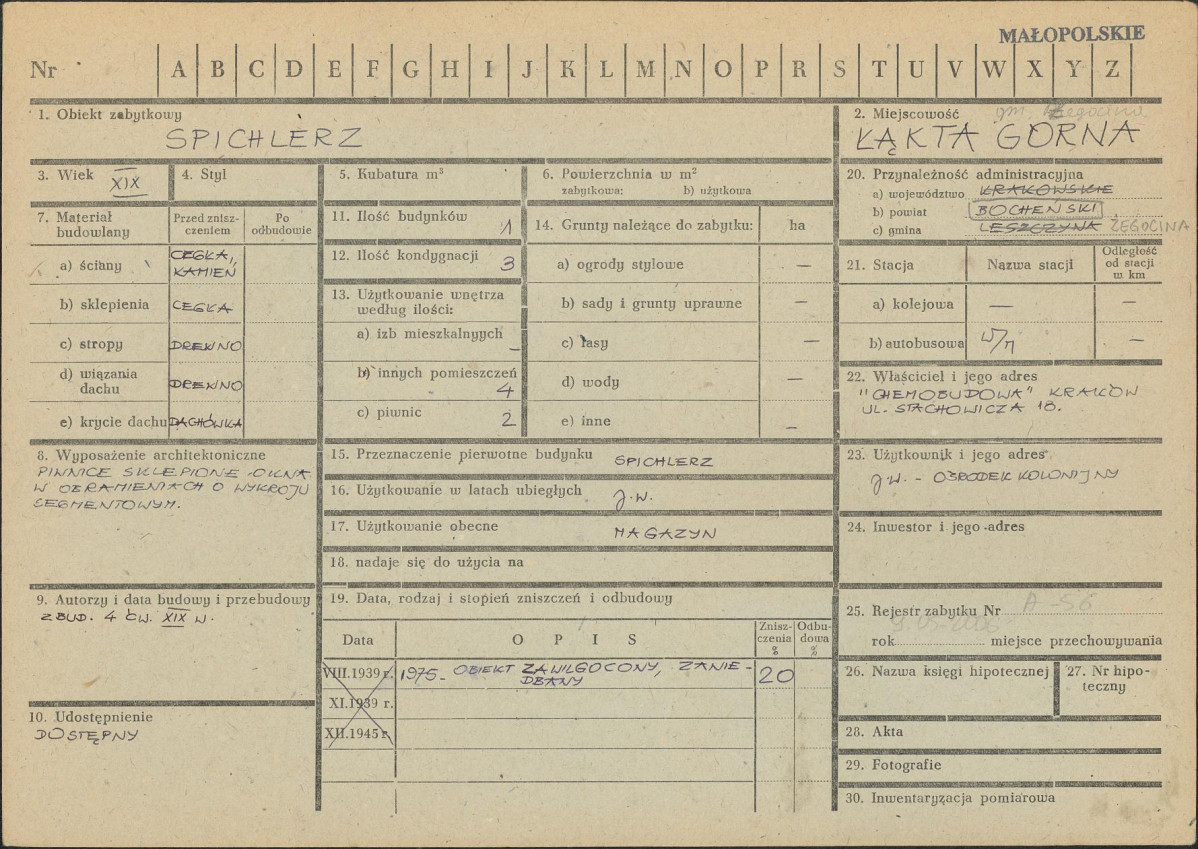 MAŁOPOLSKIE
Nr A B C D E F G H I J K L M N O P R S T U V W X Y Z
1. Obiekt zabytkowy
SPICHLERZ
2. Miejscowość gm. Żegocina
ŁĄKTA GÓRNA
3. Wiek XIX
4. Styl
5. Kubatura m³
6. Powierzchnia w m²
zabytkowa: b) użytkowa
20. Przynależność administracyjna
a) województwo KRAKOWSKIE
b) powiat BOCHEŃSKI
c) gmina LESZCZYNA ŻEGOCINA
7. Materiał budowlany
Przed znisz-
czeniem
Po
odbudowie
a) ściany CEGŁA, KAMIEŃ
b) sklepienia CEGŁA
c) stropy DREWNO
d) wiązania dachu DREWNO
e) krycie dachu DACHÓWKA
11. Ilość budynków 1
12. Ilość kondygnacji 3
13. Użytkowanie wnętrza
według ilości:
a) izb mieszkalnyych –
b) innych pomieszczeń 4
c) piwnic 2
14. Grunty należące do zabytku: ha
a) ogrody stylowe –
b) sady i grunty uprawne –
c) lasy –
d) wody –
e) inne –
21. Stacja
Nazwa stacji
Odległość
od stacji
w km
a) kolejowa – –
b) autobusowa W/M –
22. Właściciel i jego adres
"CHEMOBUDOWA" KRAKÓW
UL. STACHOWICZA 18.
8. Wyposażenie architektoniczne
PIWNICE SKLEPIONE. OKNA
W OBRAMIENIACH O WYKROJU
SEGMENTOWYM.
15. Przeznaczenie pierwotne budynku SPICHLERZ
16. Użytkowanie w latach ubiegłych J.W.
17. Użytkowanie obecne MAGAZYN
18. nadaje się do użycia na
23. Użytkownik i jego adres
J.W. - OŚRODEK KOLONIJNY
24. Inwestor i jego adres
9. Autorzy i data budowy i przebudowy
ZBUD. 4 ĆW. XIX W.
10. Udostępnienie
DOSTĘPNY
19. Data, rodzaj i stopień zniszczeń i odbudowy
Data
O P I S
Znisz-
czenia
%
Odbu-
dowa
%
VIII.1939 r. 1975 - OBIEKT ZAWILGOCONY, ZANIE-
DBANY 20
XI.1939 r.
XII.1945 r.
25. Rejestr zabytku Nr A-56
rok 9.05.2006 miejsce przechowywania
26. Nazwa księgi hipotecznej
27. Nr hipo-
teczny
28. Akta
29. Fotografie
30. Inwentaryzacja pomiarowa